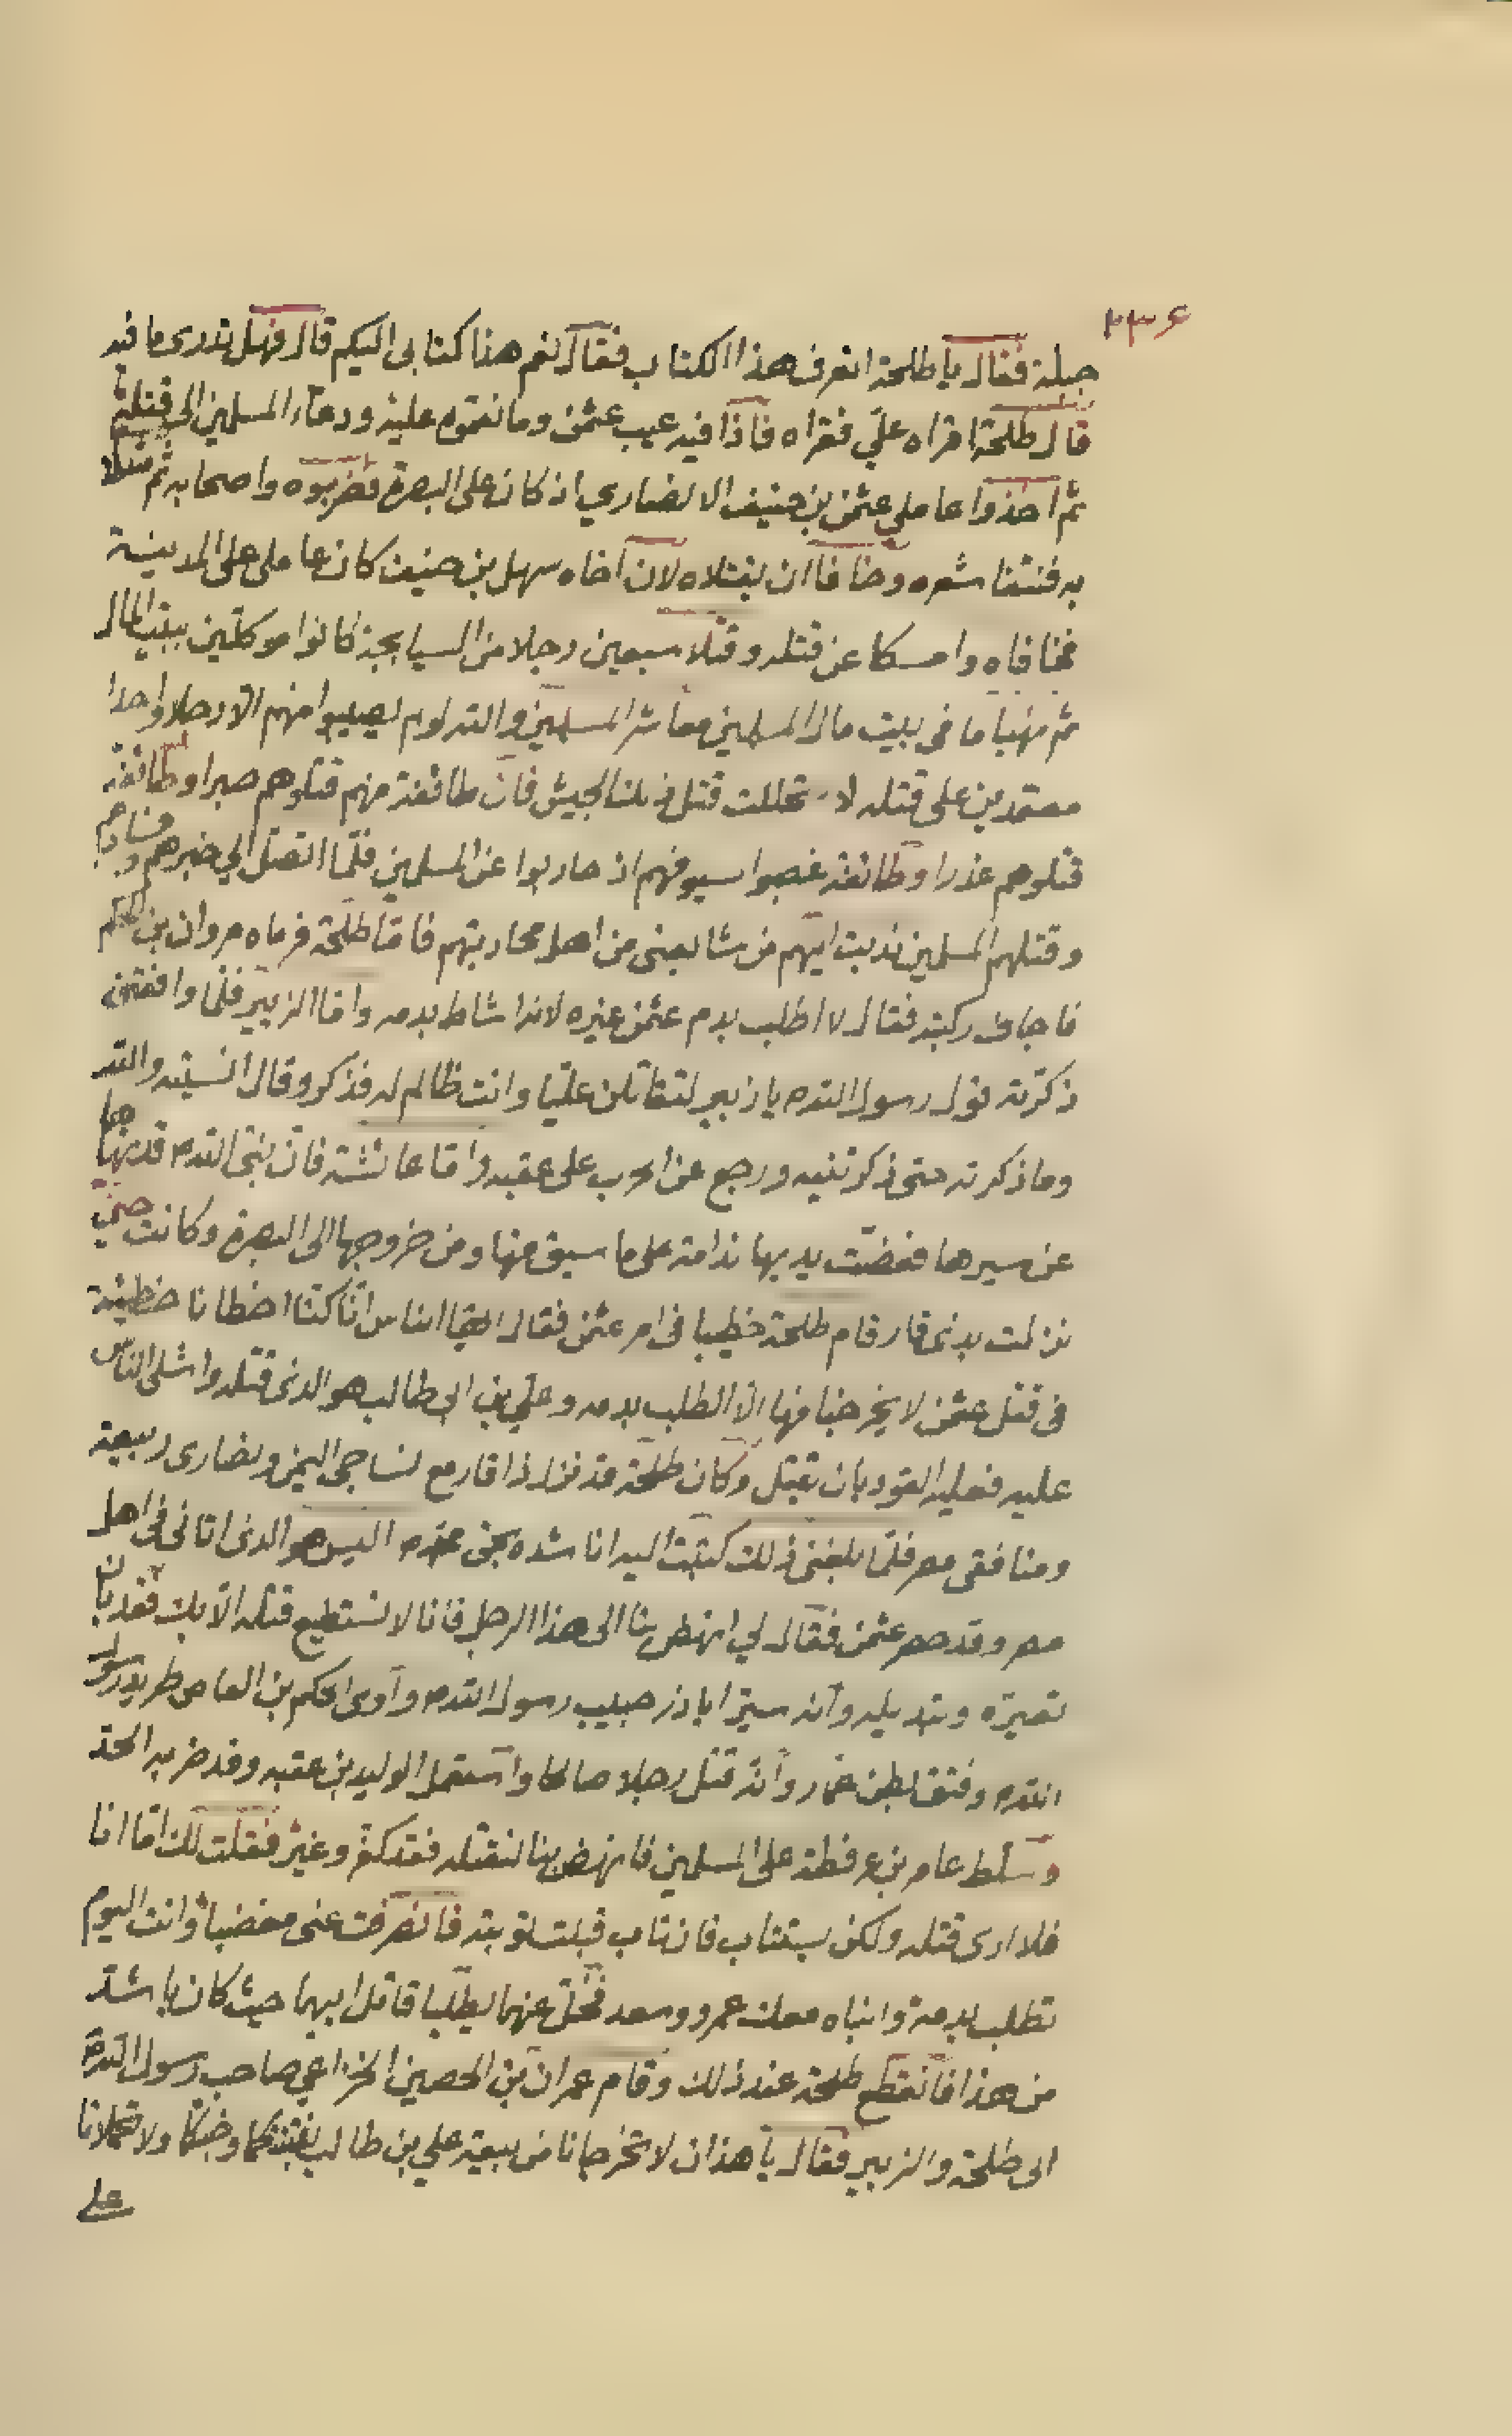 ٢٣۶
جبلة فقال يا طلحة اتعرف هذا الكتاب فقال نعم هذا كتابى اليكم قال فهل تدرى ما فيه
قال طلحة اقراه علي فقراه فاذا فيه عيب عثمن وما نقموه عليه ودعآء المسلمين الى قتله
ثم اخذوا عاملي عثمن بن حنيف الانصاري اذ كان على البصرة فضربوه واصحابه ثم
به فنتفا شعره وخافا ان يقتلاه لان اخاه سهل بن حنيف كان عاملى على المدينة
فخافاه وامسكا عن قتله وقتلا سبعين رجلا من السيابجة كانوا موكلين ببيت المال
ثم نهبا ما فى بيت مال المسلمين معاشر المسلمين والله لولم يصيبوا منهم الا رجلا واحدا
معتمدين على قتله لا تحللت قتل ذلك الجيش فان طائفة منهم قتلوهم صبرا وطائفة
قتلوهم غدرا وطائفة غصبوا سيوفهم اذ حاربوا عن المسلمين فلما اتصل الي خبرهم وفسادهم
وقتلهم المسلمين ندبت اليهم من شايعنى من اهل محاربتهم فاما طلحة فرماه مروان بن الحكم
فاجاف ركبته فقال لا اطلب بدم عثمن غيره لانه اشاط بدمه واما الزبير فلما وافقته
ذكرته قول رسول الله ص يا زبير لتقاتلن عليا وانت ظالم له فذكر وقال انسيته والله
وما ذكرته حتى ذكرتنيه ورجع عن الحرب على عقبه واما عائشة فان نبى الله ص قد نهاها
عن سيرها فعضت يديها ندامة على ما سبق منها ومن خروجها الى البصرة وكانت حين
نزلت بذى قار قام طلحة خطيبا فى امر عثمن فقال ايها الناس انا كنا اخطانا خطيئة
فى قتل عثمن لا يخرجنا منها الا الطلب بدمه وعلي بن ابى طالب هو الذى قتله واشلى الناس
عليه فعليه القود بان يقتل وكان طلحة قد نزل ذا قار مع نساجى اليمن ونصارى ربيعة
ومنافقى مصر فلما بلغنى ذلك كتبت اليه اناشده بحق محمد ص اليس هو الذى اتانى فى اهل
مصر وقد حصر عثمن فقال لي انهض بنا الى هذا الرجل فانا لا نستطيع قتله الا بك فقد بان
تغيره وتبديله وانه سير اباذر حبيب رسول الله ص وآوى الحكم بن العاص طريد رسول
الله ص وفتق بطن عمار وانه قتل رجلا صالحا واستعمل الوليد بن عقبه وقد ضربه الحد
وسلط عامر بن عرفطة على المسلمين فانهض بنا لنقتله فقد كفر وغير فقلت لك اما انا
فلا ارى قتله ولكن يستتاب فان تاب قبلت توبته فانصرفت عنى مغضبا وانت اليوم
تطلب بدمه وابناه معك عمرو وسعد فخل عنهما ليطلبا قاتل ابيهما حيث كان باشد
من هذا فانقطع طلحة عند ذلك وقام عمران بن الحصين الخزاعي صاحب رسول الله ص
الى طلحة والزبير فقال يا هذان لا تخرجانا من بيعة علي بن طالب ولا تحملانا
على